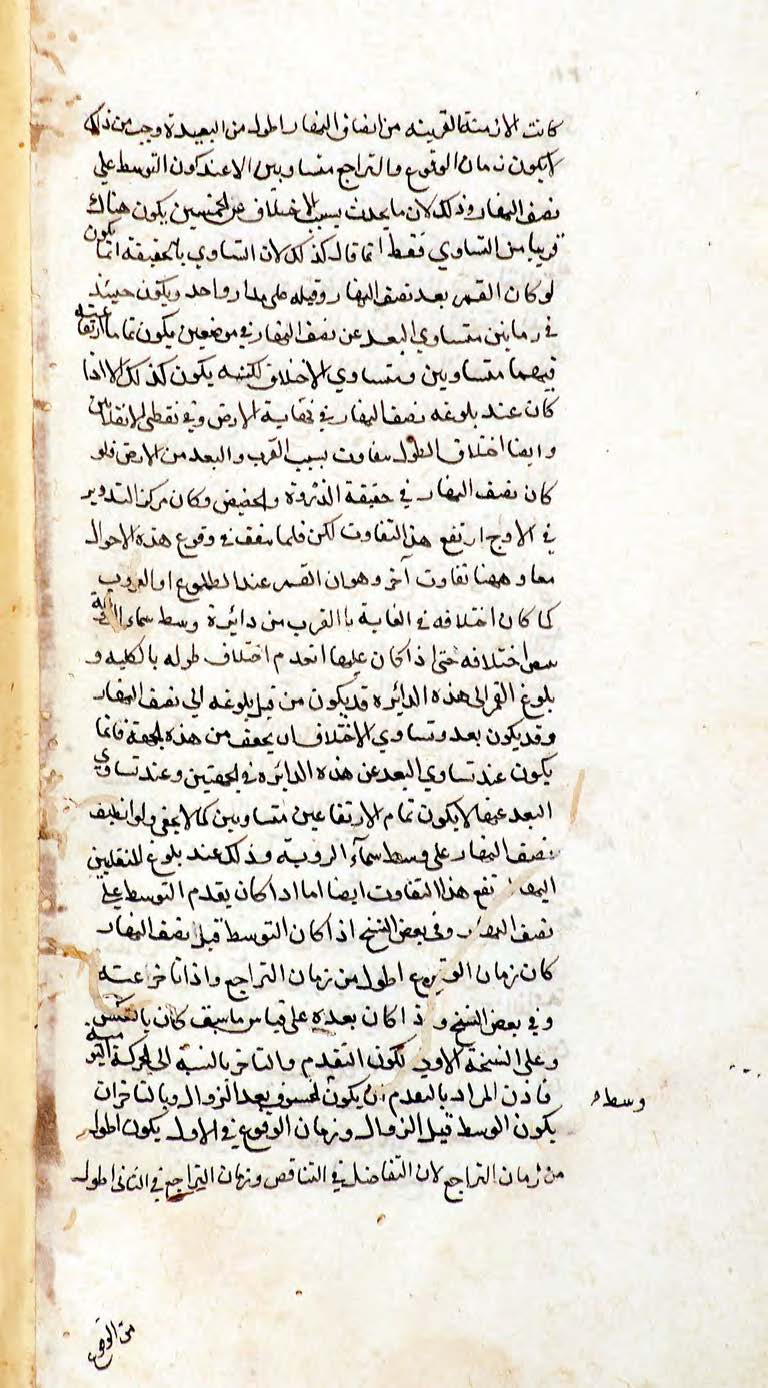 كانت الازمنة القريبه من انصاف النهار اطول من البعيدة وجب من ذلك
لا يكون زمان الوقوع والتراجع متساويين الا عند كون التوسط على
نصف النهار وذلك لان ما يحدث بسبب الاختلاف عن الجنبين يكون هناك
قريبا من التساوي فقط انما قال كذلك لان التساوي بالحقيقة انما يكون
لو كان القمر بعد نصف النهار وقبله على مدار واحد ويكون حينئذ
في زمانين متساوي البعد عن نصف النهار في موضعين يكون تماما ارتفاعيه
فيهما متساويين ومتساوي الاختلاف لكنه يكون كذلك الا اذا
كان عند بلوغه نصف النهار في الارض وفي نقطتي الانقلابين
وايضا اختلاف الطول متفاوت بسبب القرب والبعد من الارض فلو
كان نصف النهار في حقيقة الذروة والحضيض وكان مركز التدوير
في الاوج ارتفع هذا التفاوت لكن قلما يتفق في وقوع هذه الاحوال
معا وههنا تفاوت آخر وهو ان القمر عند الطلوع او الغروب
كما كان اختلافه في الغاية با القرب من دائرة وسط سماء الرؤية
اختلافه حتى اذا كان عليها انعدم اختلاف طوله بالكليه و
بلوغ القمر الى هذه الدائره قد يكون من قبل بلوغه الى نصف النهار
وقد يكون بعد وتساوي الاختلافات من هذه الجهة فانما
يكون عند تساوي البعد عن هذه الدائره في الجهتين وعند تساوي
البعد عنها لا يكون تمام الارتفاعين متساويين كما لا يخفى ولو انطبق
نصف النهار على وسط سماء الروية وذلك عند بلوغ المنقلبين
تفع هذا التفاوت ايضا اما اذا كان يقدم التوسط على
نصف النهار وفي بعض النسخ اذا كان التوسط قبل نصف النهار
كان زمان الوقوع اطول من زمان التراجع واذا تاخر عنه
وفي بعض النسخ و ذا كان بعده على قياس ما سبق كان بالعكس
وعلى النسخة الاولى لكون التقدم والتاخر بالنسبة الى الحركة اليومية
فاذن المراد بالتقدم ان يكون الخسوف بعد الزوال وبالتاخر ان
يكون الوسط قبل الزوال وزمان الوقوع في الاول يكون اطول
من زمان التراجع لان التفاضل في التناقص وزمان التراجع في الثاني اطول
وسط
من الوقوع